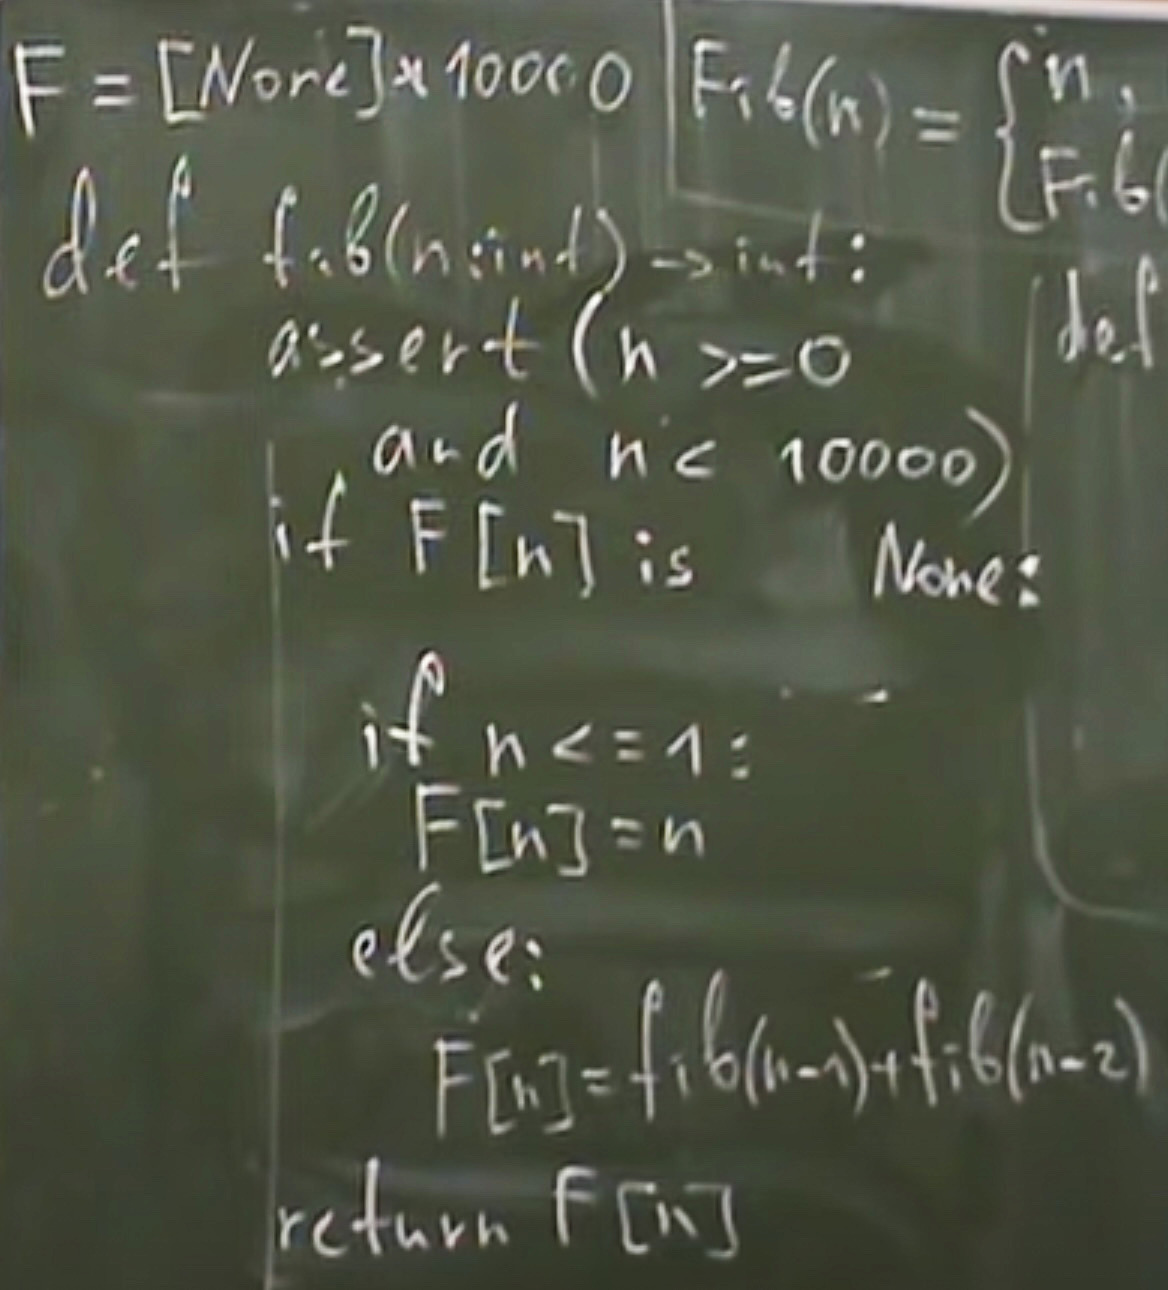 F = [None]*10000
Fib(n) = { n,
Fib(
def fib(n:int) -> int:
def
assert (n >=0
and n < 10000)
if F[n] is None:
if n <= 1:
F[n] = n
else:
F[n] = fib(n-1)+fib(n-2)
return F[n]